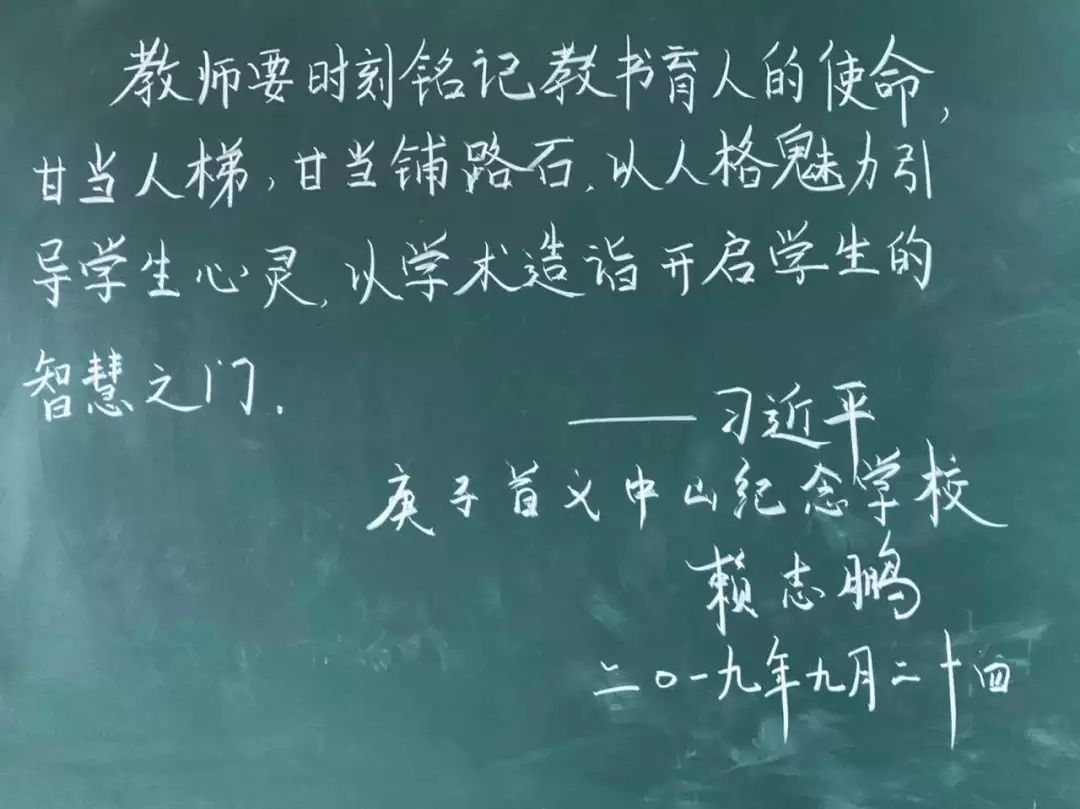 教师要时刻铭记教书育人的使命,
甘当人梯,甘当铺路石,以人格魅力引
导学生心灵,以学术造诣开启学生的
智慧之门.
——习近平
庚子首义中山纪念学校
赖志鹏
二〇一九年九月二十四